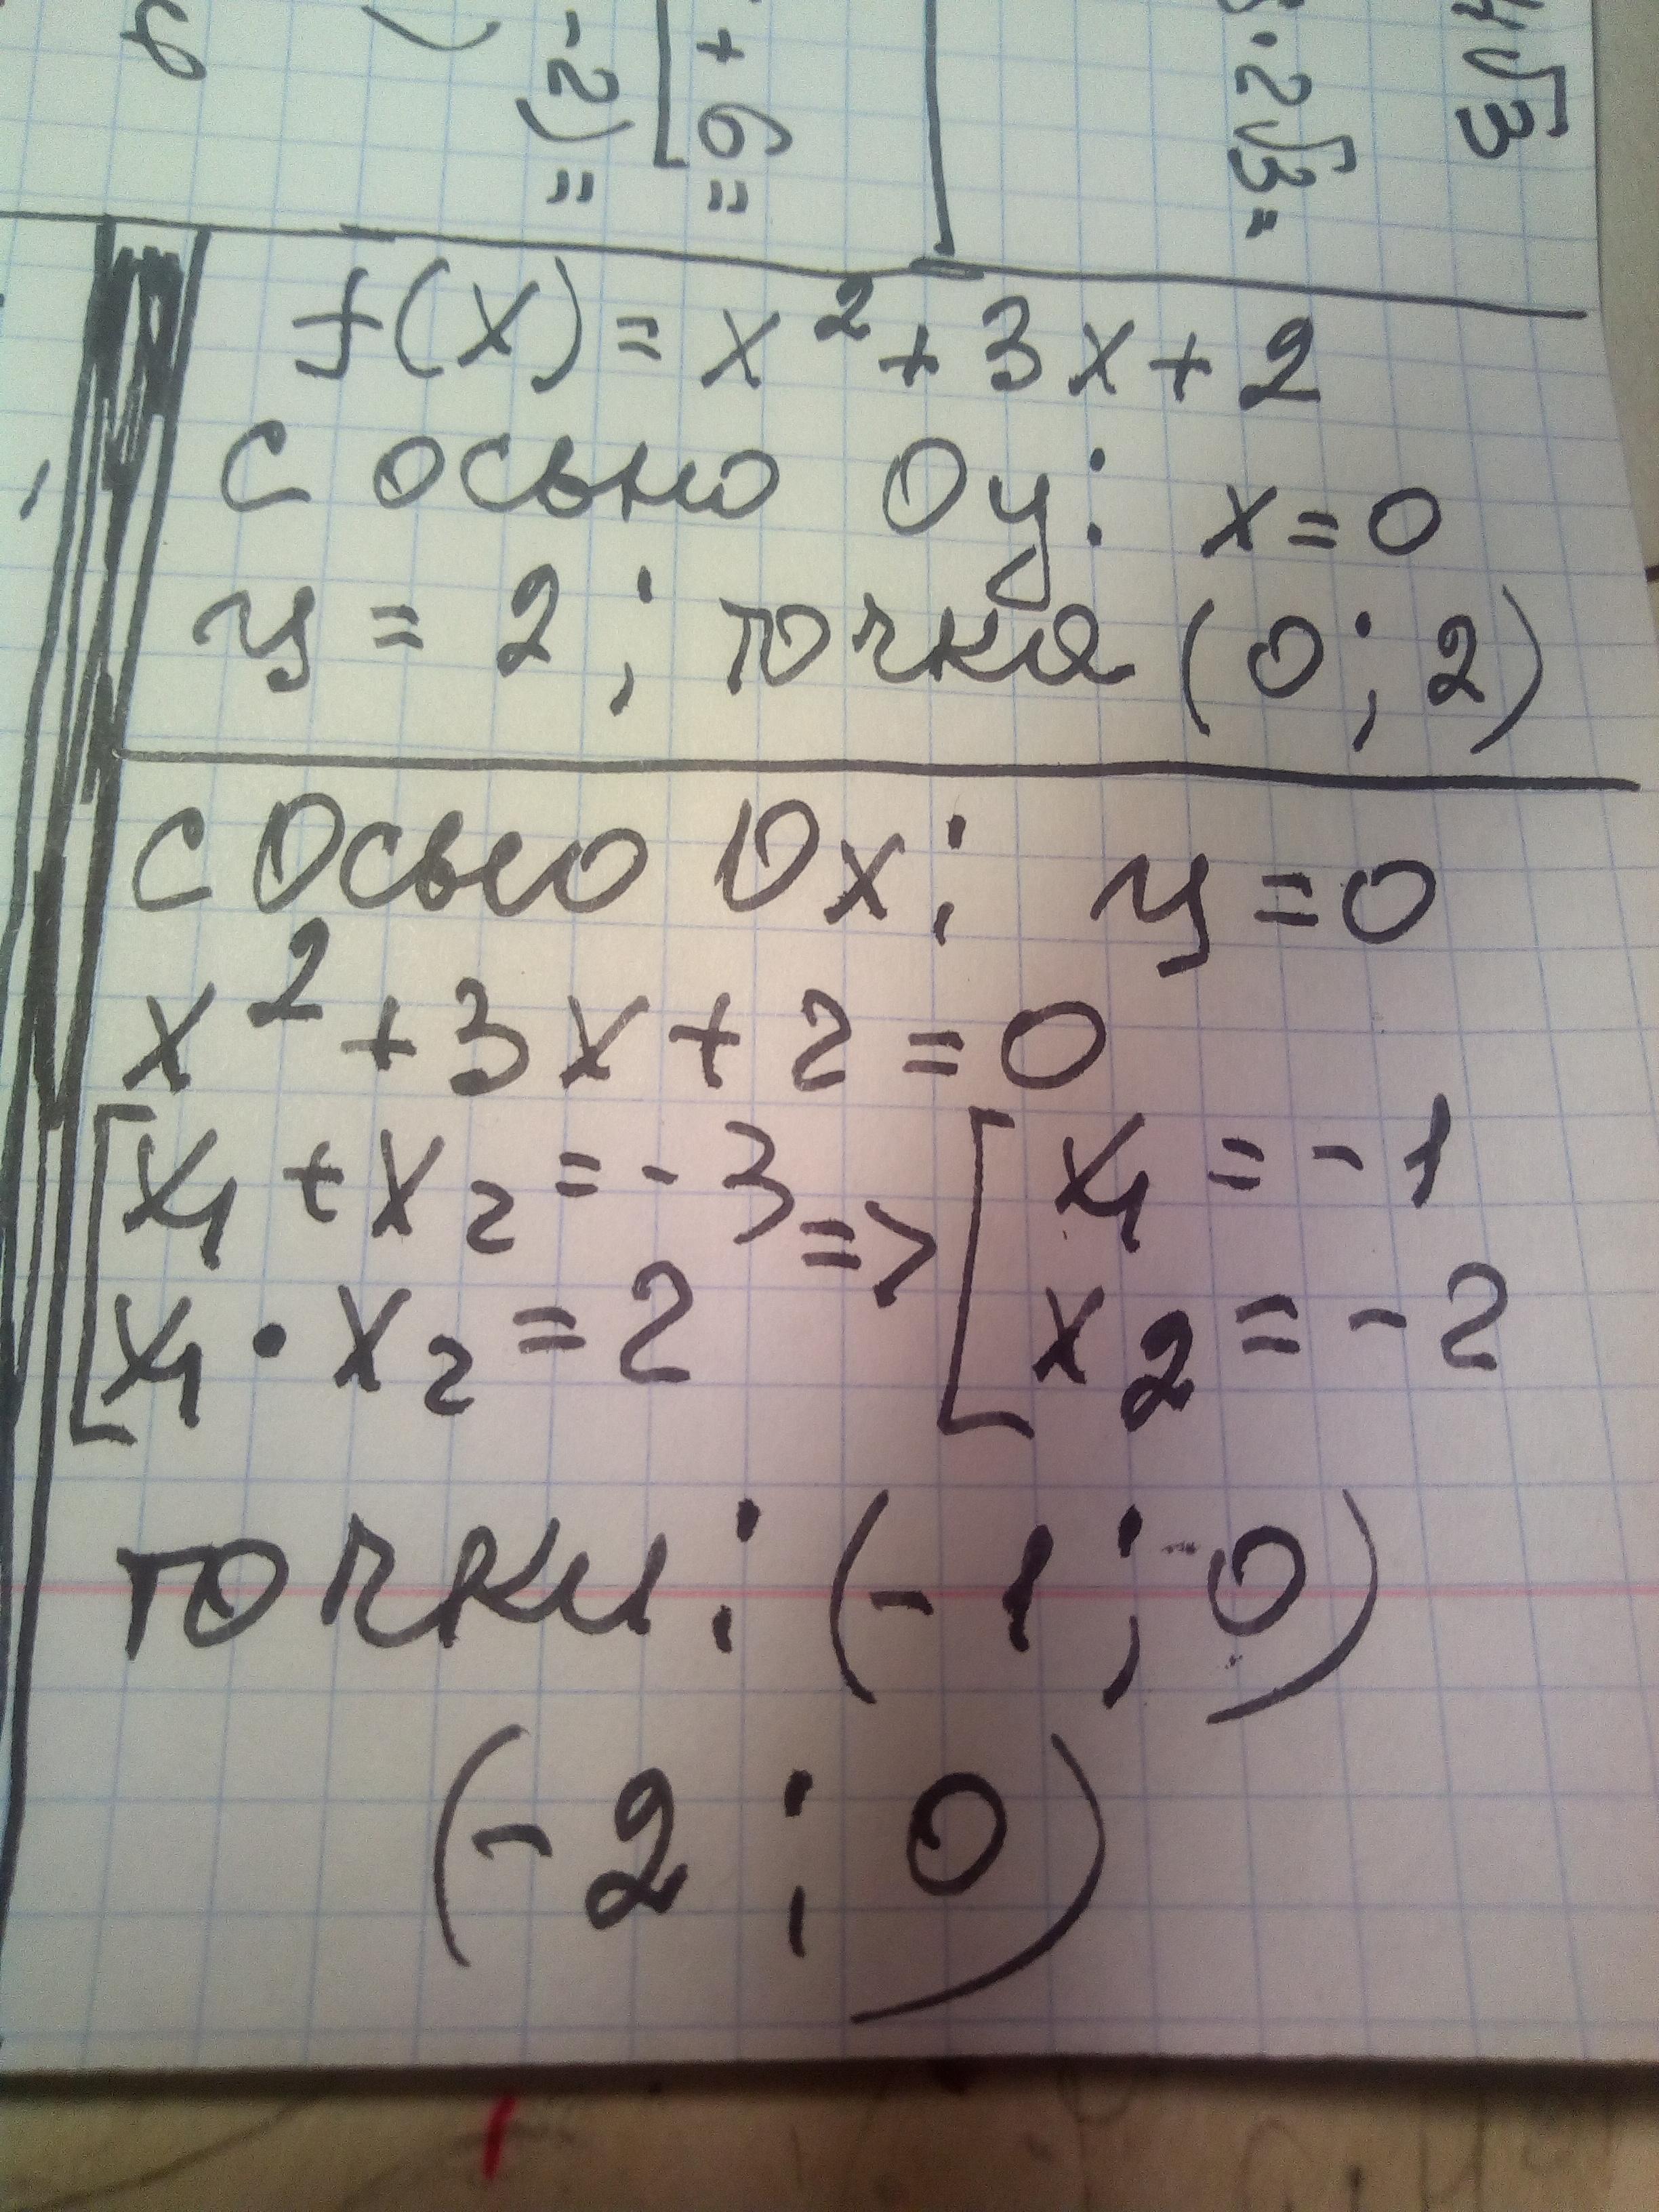 4√3
· 2√3 =
+ 6 =
-2) =
f(x) = x² + 3x + 2
с осью Oy: x = 0
y = 2; точка (0; 2)
с Осью Ox: y = 0
x² + 3x + 2 = 0
[x₁ + x₂ = -3 => [x₁ = -1
x₁ · x₂ = 2 x₂ = -2
точки: (-1; 0)
(-2; 0)